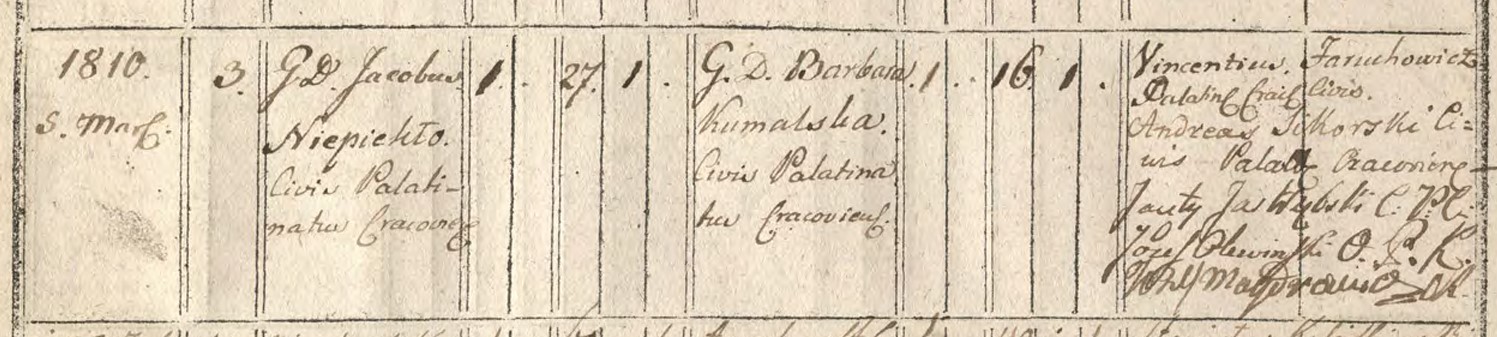 1810.
5. Mar
3.
G D. Jacobus
Niepiekło.
Civis Palati-
natus Cracov
1 . 27. 1 .
G. D. Barbara
Kumalska.
Civis Palatina
tus Cracovien
1 . . 16 1 .
Vincentius. Jaruchowicz
Palatin Civis.
Andreas Sikorski Ci=
vis Palat
Jastrzębski C. P C.
Józef Olewinski O. P. K.